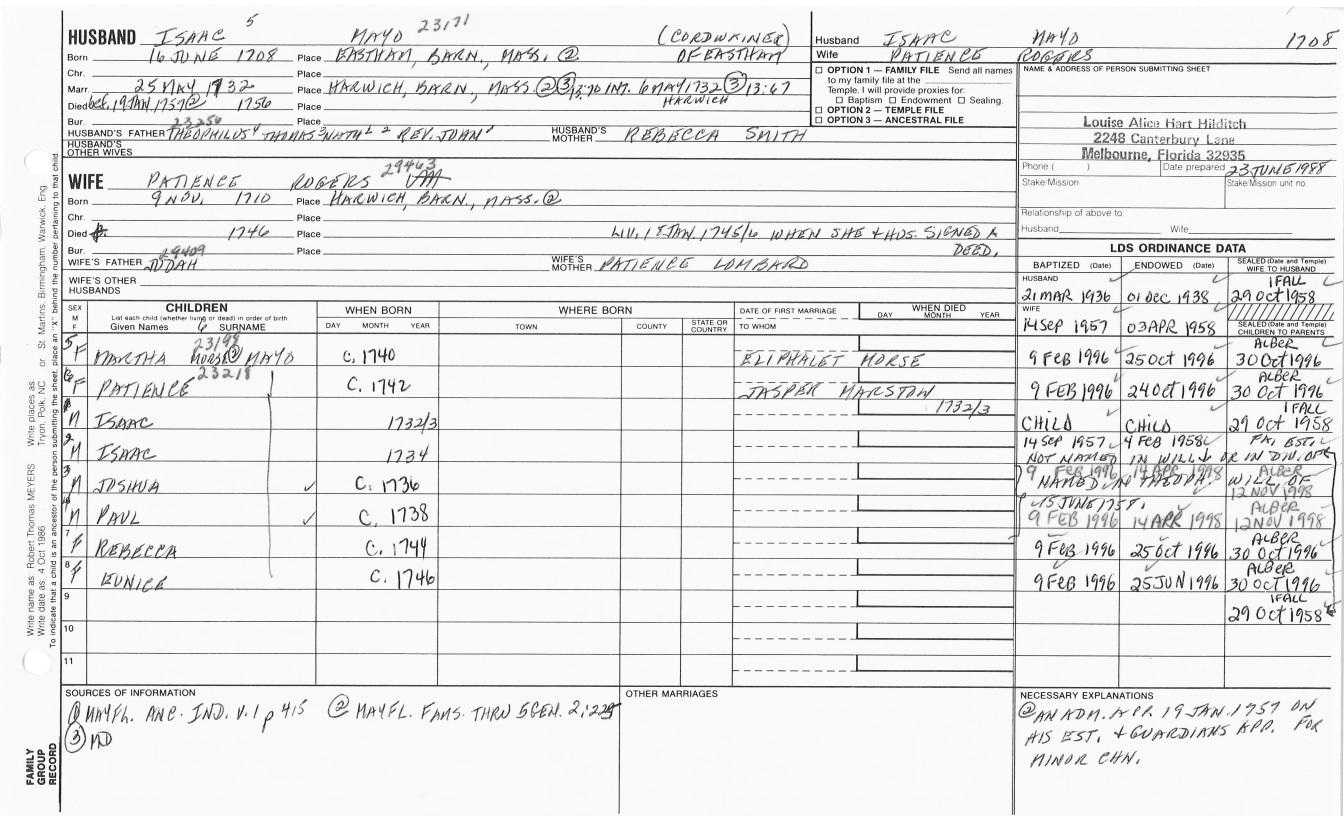 HUSBAND ISAAC 5 MAYO 23171 (CORDWAINER)
Born 16 JUNE 1708 Place EASTHAM, BARN., MASS. ② OF EASTHAM
Chr. Place
Marr. 25 MAY 1732 Place HARWICH, BARN., MASS ②③ INT. 6 MAY 1732 ③ 13:67
HARWICH
Died bef. 19 JAN. 1757② 1756 Place
Bur. 23250 Place
HUSBAND'S FATHER THEOPHILUS⁴ THOMAS³ NATH'L² REV. JOHN¹ HUSBAND'S MOTHER REBECCA SMITH
HUSBAND'S OTHER WIVES
WIFE PATIENCE ROGERS 29463
Born 9 NOV. 1710 Place HARWICH, BARN., MASS. ②
Chr. Place
Died 1746 Place LIV. 15 JAN. 1745/6 WHEN SHE + HUS. SIGNED A
DEED.
Bur. 29409 Place
WIFE'S FATHER JUDAH WIFE'S MOTHER PATIENCE LOMBARD
WIFE'S OTHER HUSBANDS
Husband ISAAC MAYO 1708
Wife PATIENCE ROGERS
☐ OPTION 1 — FAMILY FILE Send all names
to my family file at the
Temple. I will provide proxies for:
☐ Baptism ☐ Endowment ☐ Sealing.
☐ OPTION 2 — TEMPLE FILE
☐ OPTION 3 — ANCESTRAL FILE
NAME & ADDRESS OF PERSON SUBMITTING SHEET
Louise Alice Hart Hilditch
2248 Canterbury Lane
Melbourne, Florida 32935
Phone ( ) Date prepared 23 JUNE 1988
Stake/Mission Stake/Mission unit no.
Relationship of above to:
Husband Wife
LDS ORDINANCE DATA
BAPTIZED (Date) ENDOWED (Date) SEALED (Date and Temple) WIFE TO HUSBAND
HUSBAND IFALL
21 MAR 1936 01 DEC 1938 29 Oct 1958
WIFE
14 SEP 1957 03 APR 1958 SEALED (Date and Temple) CHILDREN TO PARENTS
SEX M F CHILDREN WHEN BORN WHERE BORN DATE OF FIRST MARRIAGE WHEN DIED
List each child (whether living or dead) in order of birth
Given Names 6 SURNAME DAY MONTH YEAR TOWN COUNTY STATE OR COUNTRY TO WHOM DAY MONTH YEAR
23198 ALBER
5 F MARTHA MORSE② MAYO C. 1740 ELIPHALET MORSE 9 FEB 1996 25 Oct 1996 30 Oct 1996
23218 ALBER
6 F PATIENCE C. 1742 JASPER MARSTOW 9 FEB 1996 24 Oct 1996 30 Oct 1996
1 M ISAAC 1732/3 1732/3 CHILD CHILD IFALL 29 Oct 1958
2 M ISAAC 1734 14 SEP 1957 4 FEB 1958 FA. EST.
NOT NAMED IN WILL OR IN DIV. OF
3 M JOSHUA C. 1736 9 FEB 1996 14 APR 1998 ALBER 12 NOV 1998
NAMED IN THEOPH. WILL OF
15 JUNE 1758.
4 M PAUL C. 1738 9 FEB 1996 14 APR 1998 ALBER 12 NOV 1998
7 F REBECCA C. 1744 9 FEB 1996 25 Oct 1996 ALBER 30 Oct 1996
8 F EUNICE C. 1746 9 FEB 1996 25 JUN 1996 ALBER 30 Oct 1996
9 IFALL 29 Oct 1958
10
11
SOURCES OF INFORMATION
① MAYFL. ANC. IND. V. 1 p 415 ② MAYFL. FAMS. THRU 5 GEN. 2:225
③ MD
OTHER MARRIAGES
NECESSARY EXPLANATIONS
② AN ADM. APP. 19 JAN. 1757 ON
HIS EST. + GUARDIANS APP. FOR
MINOR CHN.
Write name as: Robert Thomas MEYERS Write places as: Tryon, Polk, NC or St. Martins, Birmingham, Warwick, Eng.
Write date as: 4 Oct 1986
To indicate that a child is an ancestor of the person submitting the sheet, place an "X" behind the number pertaining to that child.
FAMILY
GROUP
RECORD